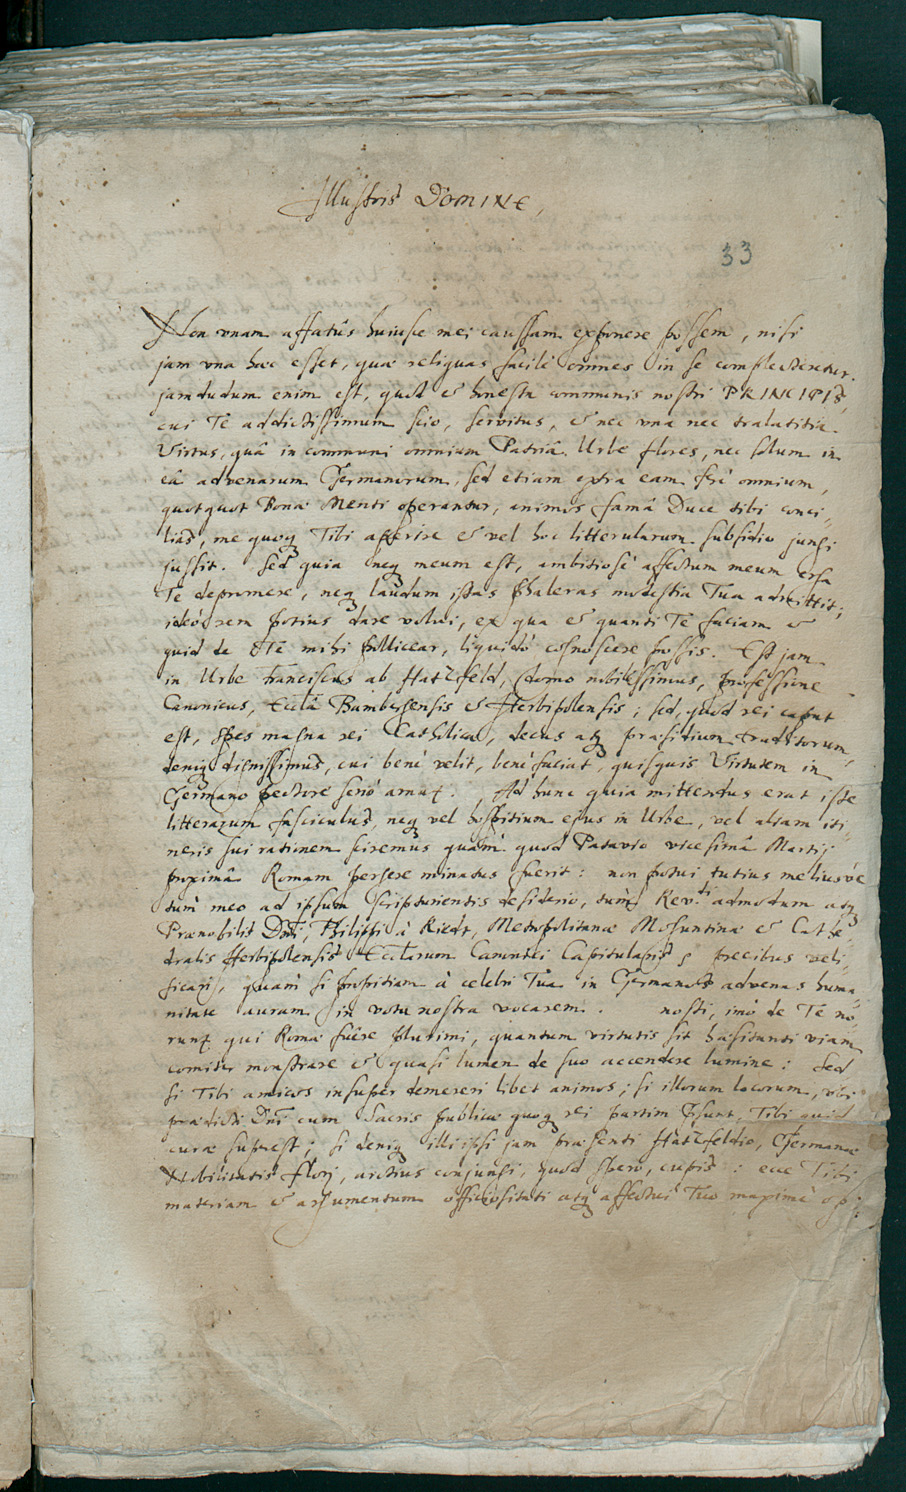 Illustris DomINE,
33
Non vnam affatûs huiusce mei caussam exponere possem, nisi
jam vna haec esset, quae reliquas facilè omnes in se complecteretur.
jamdudum enim est, quod & honesta communis nostri PRINCIPIS,
cui Te addictissimum scio, servitus, & nec vna nec tralatitia
Virtus, quâ in communi omnium Patriâ Urbe flores, nec solum in
eâ advenarum Germanorum, sed etiam extra eam ferè omnium,
quotquot Bonae Menti operantur, animos famâ Duce tibi conci-
lias, me quoq Tibi aperire & vel hoc litterularum subsidio jungi
jussit. Sed quia neq meum est, ambitiosè affectum meum erga
Te depromere, neq laudum istas phaleras modestia Tua admittit;
ideò rem potius dare volui, ex qua & quanti Te faciam &
quid de Te mihi pollicear, liquidò cognoscere possis. Est jam
in Urbe Franciscus ab Hatzfeld, domo nobilissimus, professione
Canonicus, Eccla Bambergensis & Herbipolensis; sed, quod rei caput
est, spes magna rei Catholicae, decus atq praesidium Eruditorum,
deniq dignissimus, cui benè velit, benè faciat, quisquis Virtutem in
Germano pectore seriò amat. Ad hunc quia mittendus erat iste
litterarum fasciculus, neq vel hospitium ejus in Urbe, vel aliam iti-
neris sui rationem sciremus quàm quod Patavio vicesimâ Martij
proximâ Romam pergere minatus fuerit: non potui tutius meliusvè
tum meo ad ipsum scripturientis desiderio, tum Rev.di admodum atq
Praenobilis Dni, Philippi à Riedt, Metropolitanae Moguntinae & Cathe-
dralis Herbipolensis Ecclarum Canonici Capitularis precibus veli-
ficari, quàm si propitiam à celebri Tua in Germanos advenas huma-
nitate auram in vota nostra vocarem. nosti, imò de Te no-
runt qui Romae fuêre plurimi, quantum virtutis sit haesitanti viam
comiter monstrare & quasi lumen de suo accendere lumine: Sed
si Tibi amicos insuper demereri libet animos; si illorum locorum, vbi
praedicti Dni cum Sacris publicae quoq rei partim psunt, Tibi quid
curae superest; si deniq illi ipsi jam praesenti Hatzfeldio, Germanae
Nobilitatis flori, arctius conjungi, quod spero, cupis: ecce Tibi
materiam & argumentum officiositati atq affectui Tuo maximè op-